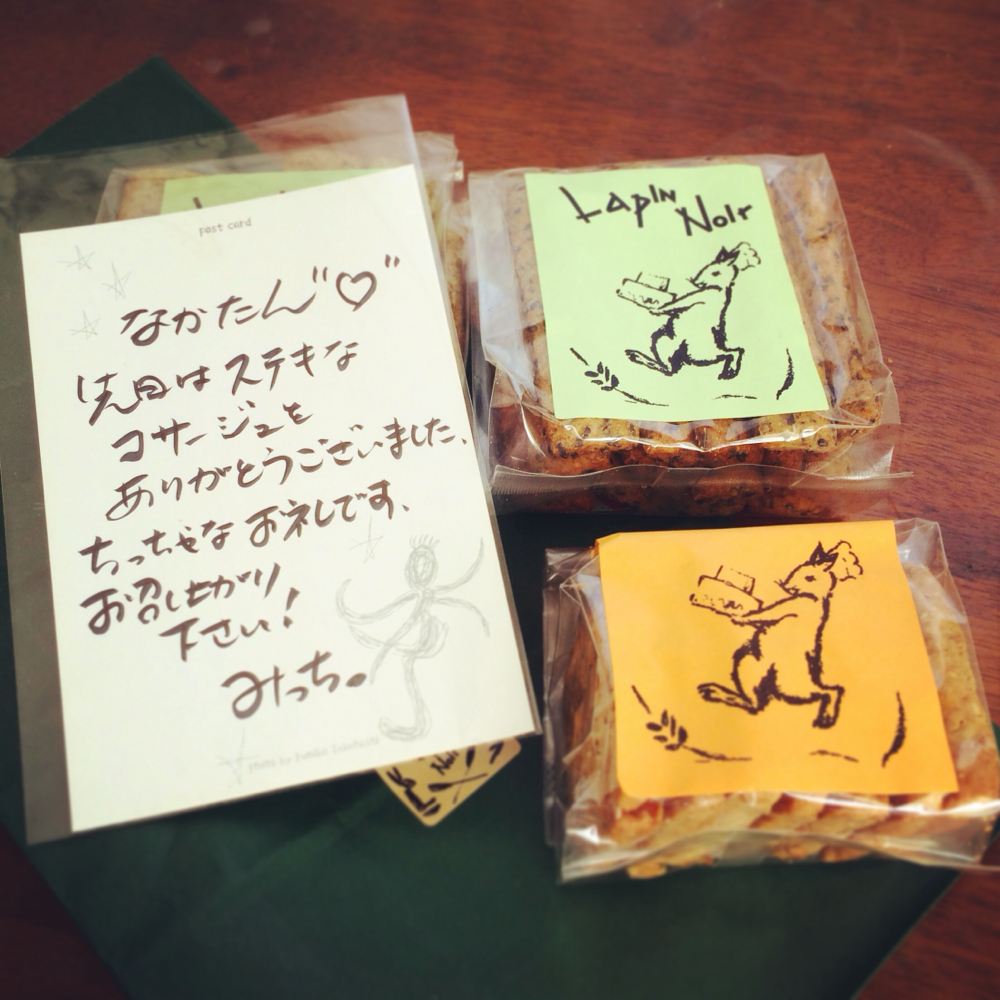 post card
なかたん"♡"
先日は ステキな
コサージュを
ありがとうございました、
ちっちゃな お礼です、
お召し上がり
下さい!
みっち。
Lapin
Noir